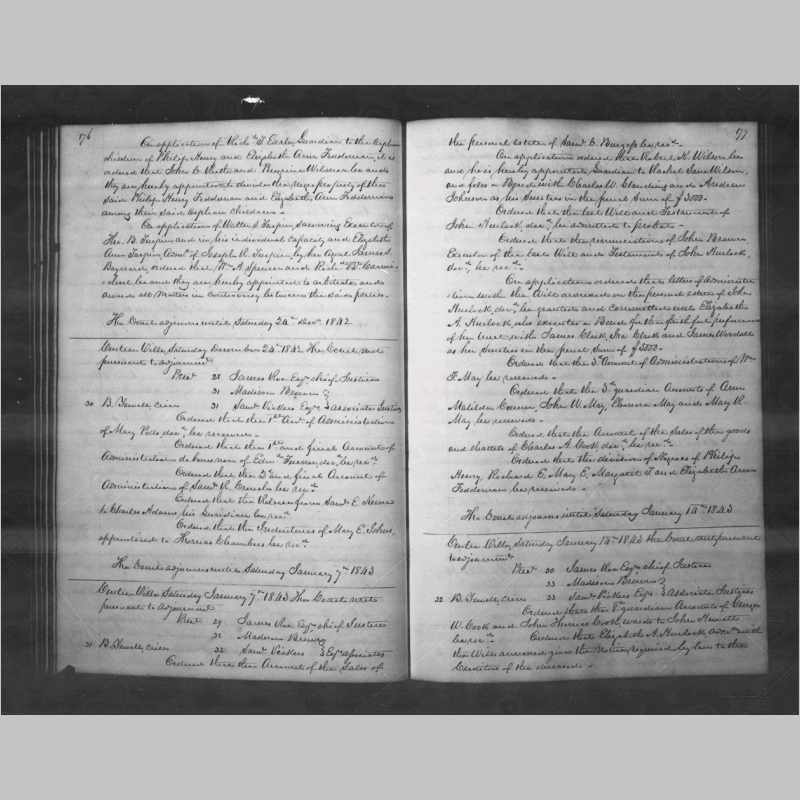 176
On application of Rich.d T. Earle Guardian to the orphan
children of Philip Henry and Elizabeth Ann Fiddeman, it is
ordered that John C. and Benjamin be and
they are hereby appointed to divide the negro property of the
said Philip Henry Fiddeman and Elizabeth Ann Fiddeman
among their said orphan children.
On application of Walter J. Turpin surviving Executor of
Tho. B. Turpin and in his individual capacity and Elizabeth
Ann Turpin Admx of Joseph R. Turpin, by her agent Samuel
ordered that Wm A. Spencer and Rich.d
be and they are hereby appointed to arbitrate and
award all matters in controversy between the said parties.
The Court adjourns until Saturday 24th Decr 1842
Centre Ville, Saturday December 24th 1842 The Court met
pursuant to adjournment
Prest 28 James Roe Esqr chief Justice
31 Madison Brown
30 B. Tewell, crier 31 Saml Vickers Esqrs associate Justices
Ordered that the 1st Acct of Administration
of Mary decd, be
Ordered that the 1st and final Account of
Administration de bonis non of Edwd Turner, decd, be recd
Ordered that the 2d and final Account of
Administration of Saml R. be recd
Ordered that the Release from Saml E.
to Charles Adams, his Guardian be recd
Ordered that the Indentures of Mary E. Johns,
apprenticed to Thomas Chambers be recd
The Court adjourns until Saturday January 7th 1843
Centre Ville Saturday January 7th 1843 The Court met
pursuant to adjournment
Prest 29 James Roe Esqr chief Justice
31 Madison Brown
31 B. Tewell, crier 32 Saml Vickers Esqrs associates
Ordered that the Account of the Sales of
177
the personal estate of Saml C. Burgess be recd
On application ordered that Robert N. Wilson be
and he is hereby appointed Guardian to Rachel Jane Wilson,
and files a Bond with Charles W. Clendening and Andrew
Johnson as his Sureties in the penal sum of $3000.
Ordered that the last Will and Testament of
John Hurlock, decd, be admitted to probate
Ordered that the renunciation of John Brown
Executor of the last Will and Testament of John Hurlock,
decd, be recd
On application ordered that letters of Administra
tion with the Will annexed on the personal estate of John
Hurlock, decd, be granted and committed unto Elizabeth
A. Hurlock, who executes a Bond for the faithful performance
of her trust with James Clark, Ira Clark and James Woodall
as her Sureties in the penal sum of $3500
Ordered that the 3d Account of Administration of Wm
F. May be recorded
Ordered that the 3d guardian Accounts of Ann
Matilda John W. May, Elenora May and Mary R.
May be recorded
Ordered that the Account of the Sales of the goods
and chattels of Charles A. Cook, decd, be recd
Ordered that the division of Negroes of Philip
Henry, Richard E. Mary E. Margaret T. and Elizabeth Ann
Fiddeman be recorded
The Court adjourns until Saturday January 14th 1843
Centre Ville, Saturday January 14th 1843 the Court met pursuant
to adjournment
Prest 30 James Roe Esqr chief Justice
33 Madison Brown
32 B. Tewell, crier 33 Saml Vickers Esqrs associate Justices
Ordered that the 1st guardian Accounts of George
W. Cook and John Thomas Cook wards to John Hewitt
be recd Ordered that Elizabeth A. Hurlock, admx with
the Will annexed give the Notice required by law to the
Creditors of the deceased